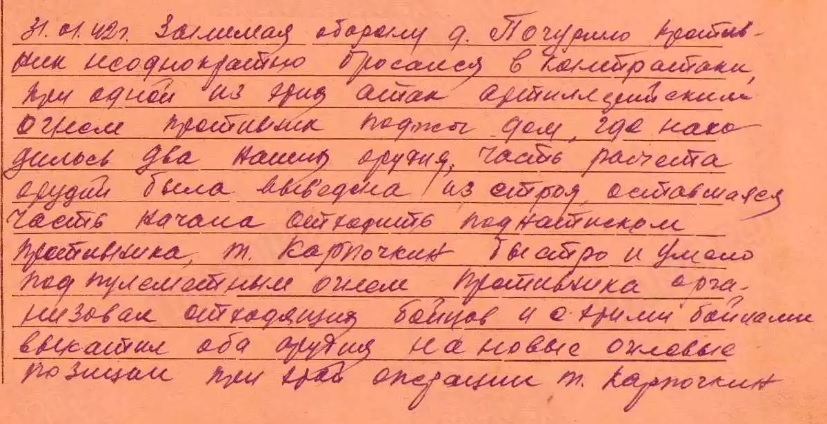 31.01.42г. Занимая оборону д. Почурино против-
ник неоднократно бросался в контратаки,
при одной из этих атак артиллерийским
огнем противник поджог дом, где нахо
дилось два наших орудия, часть расчета
орудий была выведена из строя, оставшаяся
часть начала отходить под натиском
противника, т. Карпочкин быстро и умело
под пулеметным огнем противника орга-
низовал отходящих бойцов и с этими бойцами
выкатил оба орудия на новые огневые
позиции при этой операции т. Карпочкин